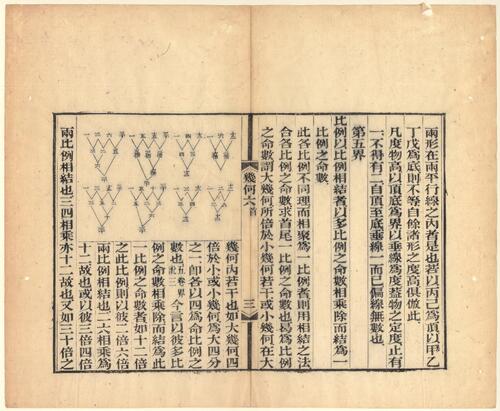 兩形在兩平行線之內者是也若以丙已為頂以甲乙
丁戊為底則不等自餘諸形之度高俱倣此
凡度物高以頂底為界以垂線為度葢物之定度止有
一不得有二自頂至底垂線一而已偏線無數也
第五界
比例以比例相結者以多比例之命數相乘除而結為一
比例之命數
此各比例不同理而相聚為一比例者則用相結之法
合各比例之命數求首尾一比例之命數也曷為比例
之命數謂大幾何所倍於小幾何若干或小幾何在大
幾何六首
三
幾何內若干也如大幾何四
倍於小或小幾何為大四分
之一即各以四為命比例之
數也今言以彼多比
例之命數相乘除而結為此
一比例之命數者如十二倍
之此比例則以彼二倍六倍
兩比例相結也二六相乘為
十二故也或以彼三倍四倍
兩比例相結也三四相乘亦十二故也又如三十倍之